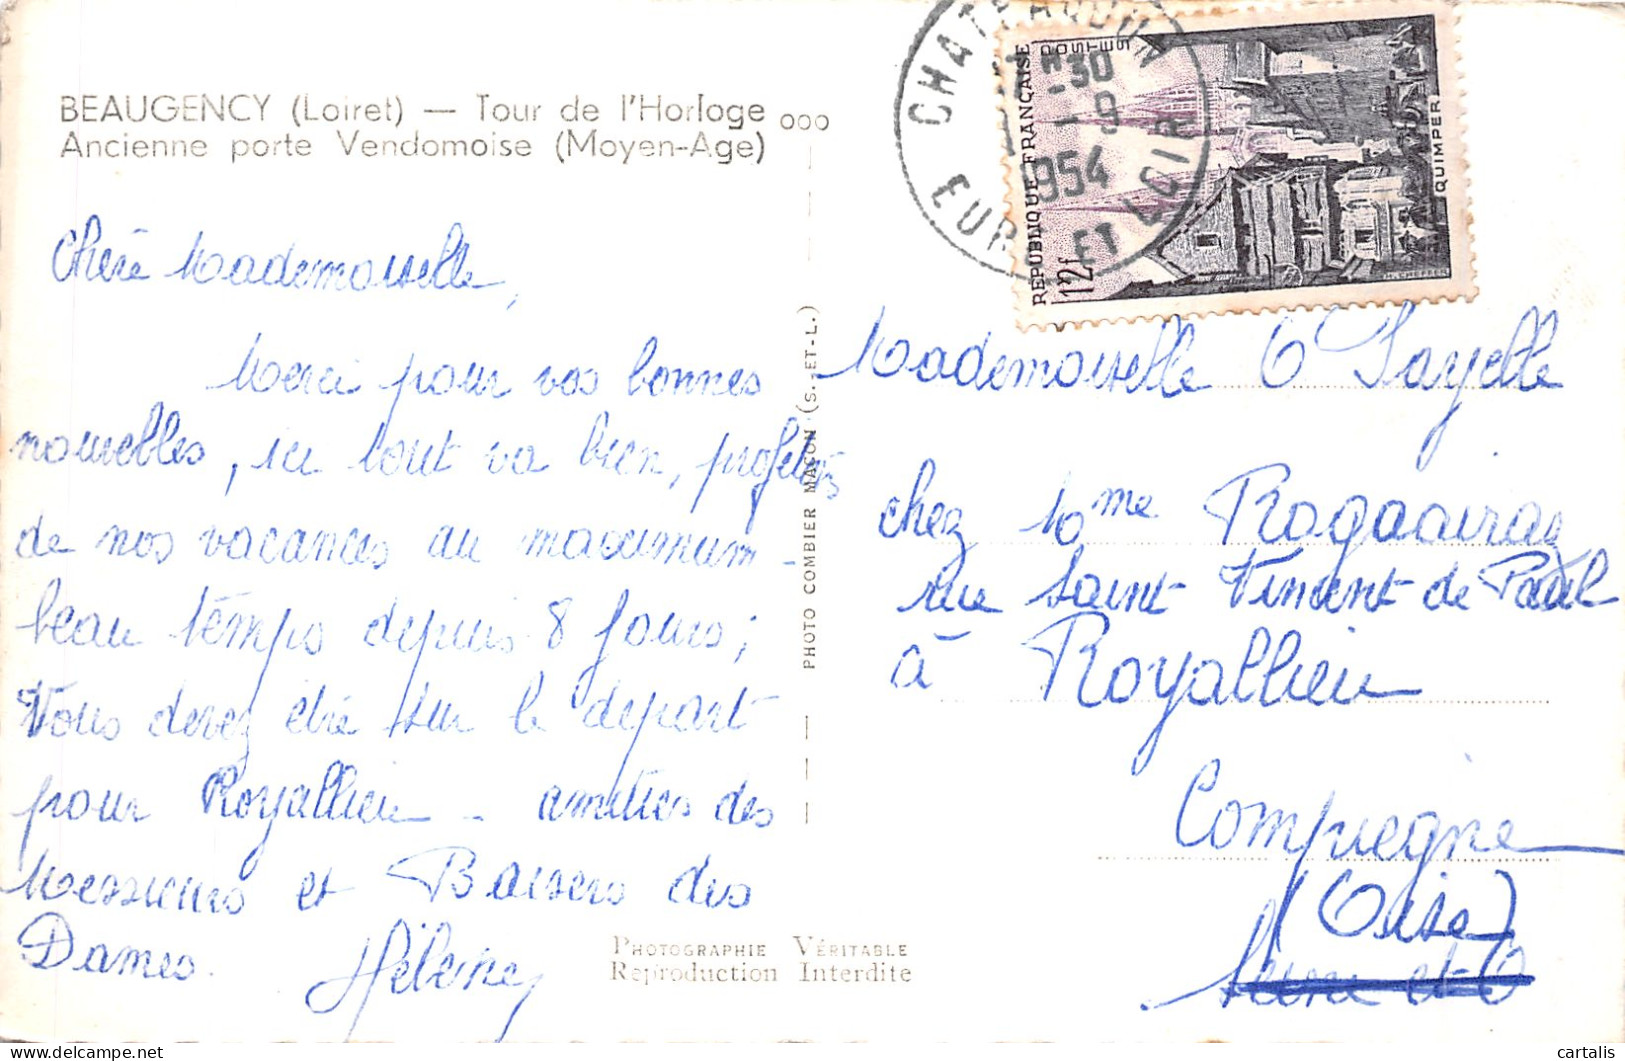 BEAUGENCY (Loiret) — Tour de l'Horloge ooo
Ancienne porte Vendomoise (Moyen-Age)
Chère Mademoiselle,
Merci pour vos bonnes
nouvelles, ici tout va bien, profitons
de nos vacances au maximum -
beau temps depuis 8 jours;
Vous devez être sur le départ
pour Royallieu - amitiés des
Messieurs et Baisers des
Dames. Hélène
PHOTO COMBIER MACON (S.-ET-L.)
PHOTOGRAPHIE VÉRITABLE
Reproduction Interdite
CHATEAUDUN
30
- 9
1954
EURE ET LOIR
REPUBLIQUE FRANÇAISE
POSTES
12f
QUIMPER
Mademoiselle O Sayelle
chez Mme
rue Saint Vincent de Paul
à Royallieu
Compiegne
(Oise)
Seine et O
cartalis